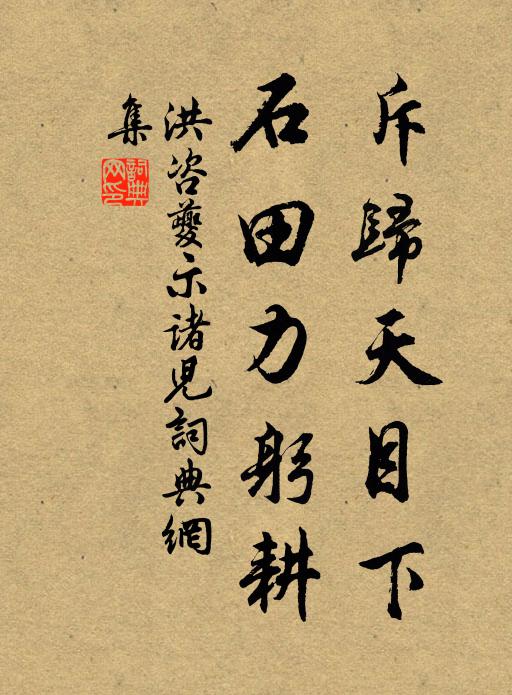 斥歸天目下
石田力躬耕
洪咨夔示諸兒詞典網
集
詞典
网印